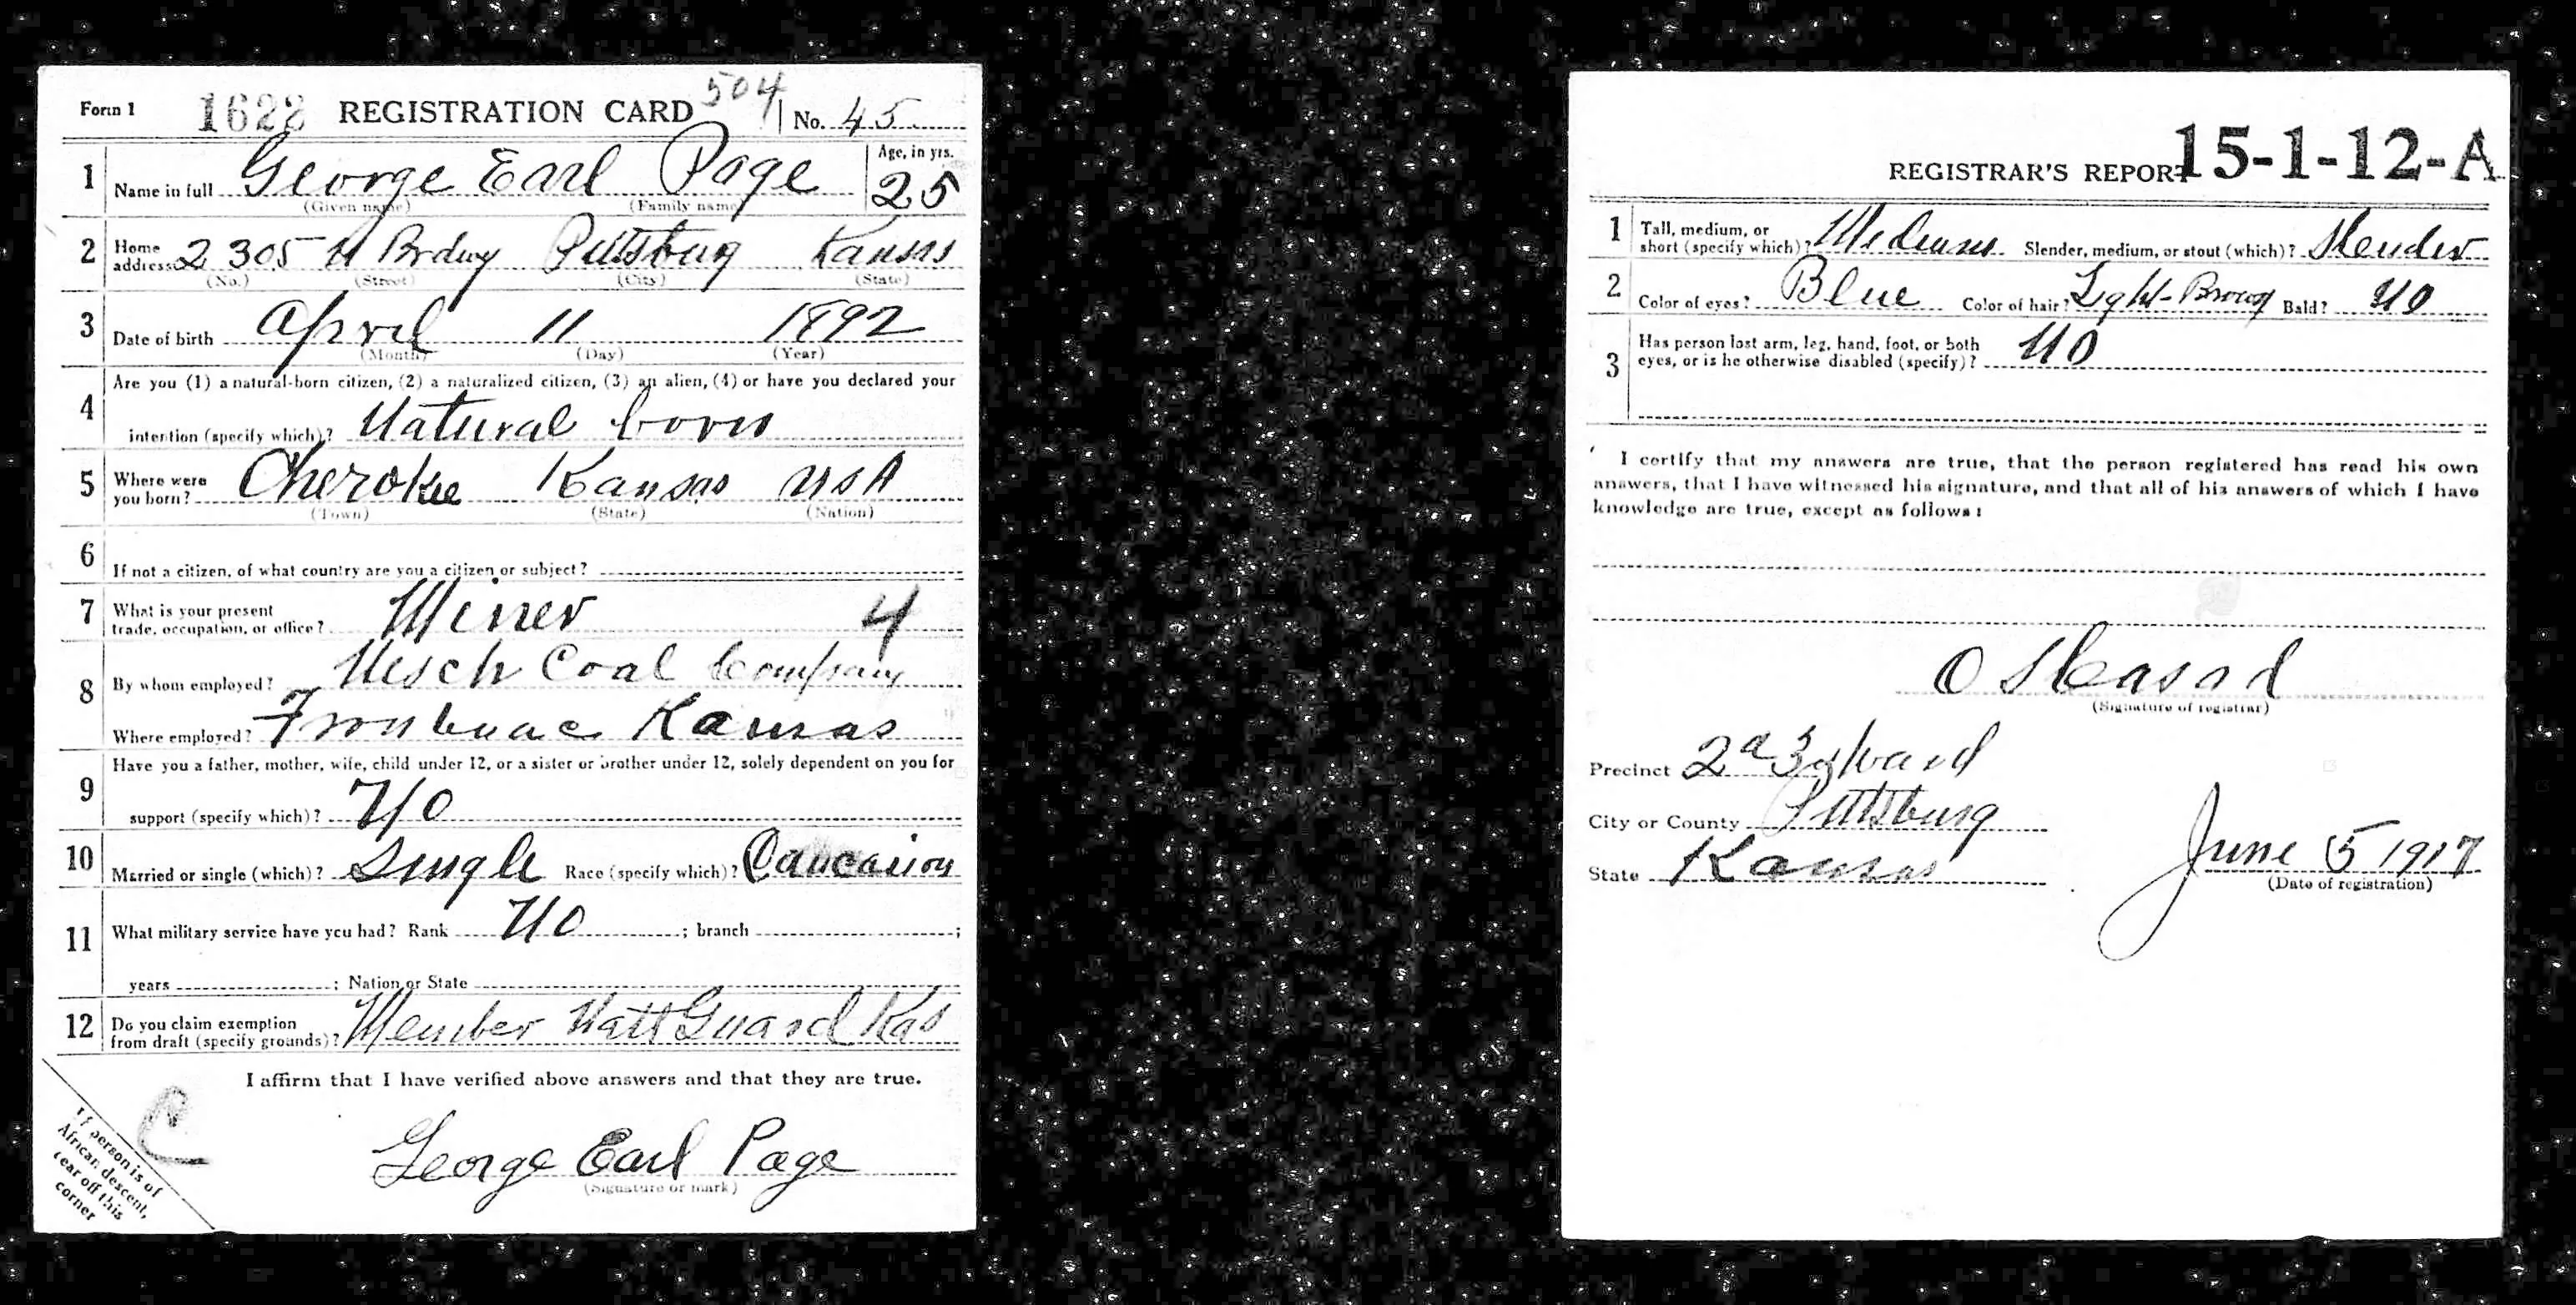 Form 1 1622 REGISTRATION CARD 504 No. 45
1 Name in full George Earl Page Age, in yrs. 25
(Given name) (Family name)
2 Home address 2305 N Brdwy Pittsburg Kansas
(No.) (Street) (City) (State)
3 Date of birth April 11 1892
(Month) (Day) (Year)
4 Are you (1) a natural-born citizen, (2) a naturalized citizen, (3) an alien, (4) or have you declared your
intention (specify which)? Natural born
5 Where were you born? Cherokee Kansas USA
(Town) (State) (Nation)
6 If not a citizen, of what country are you a citizen or subject?
7 What is your present trade, occupation, or office? Miner 4
8 By whom employed? Coal Company
Where employed? Frontenac Kansas
9 Have you a father, mother, wife, child under 12, or a sister or brother under 12, solely dependent on you for
support (specify which)? No
10 Married or single (which)? Single Race (specify which)? Caucasion
11 What military service have you had? Rank No ; branch ;
years ; Nation or State
12 Do you claim exemption from draft (specify grounds)? Member Natl Guard Kas
I affirm that I have verified above answers and that they are true.
C
George Earl Page
(Signature or mark)
If person is of
African descent,
tear off this
corner
REGISTRAR'S REPORT 15-1-12-A
1 Tall, medium, or short (specify which)? Medium Slender, medium, or stout (which)? Slender
2 Color of eyes? Blue Color of hair? Light-Brown Bald? No
3 Has person lost arm, leg, hand, foot, or both
eyes, or is he otherwise disabled (specify)? No
I certify that my answers are true, that the person registered has read his own
answers, that I have witnessed his signature, and that all of his answers of which I have
knowledge are true, except as follows:
O S Casad
(Signature of registrar)
Precinct 2d 3d Ward
City or County Pittsburg
State Kansas
June 5 1917
(Date of registration)